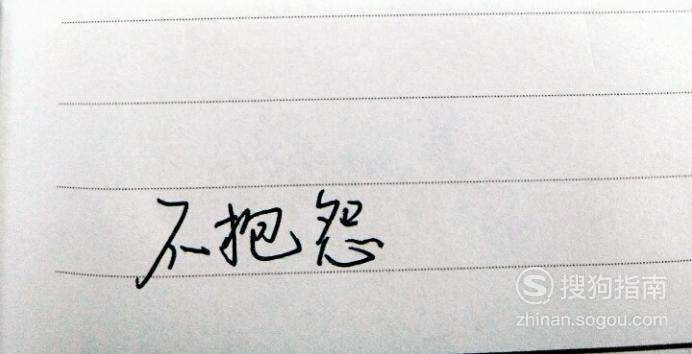 不抱怨
搜狗指南
zhinan.sogou.com